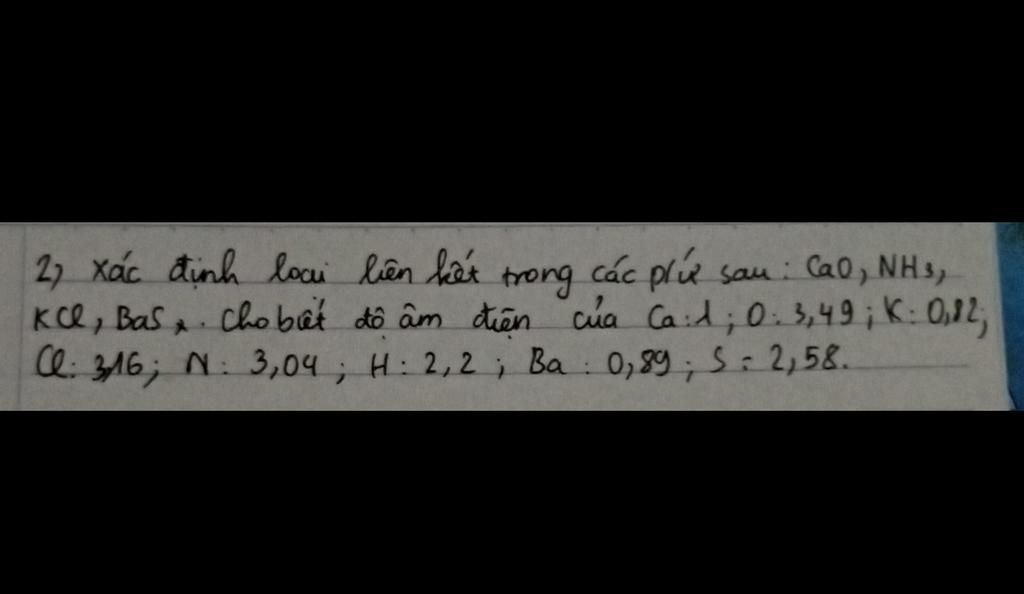 2) Xác định loại liên kết trong các p/tử sau: CaO, NH3,
KCl, BaS. Cho biết độ âm điện của Ca: 1; O: 3,49; K: 0,82;
Cl: 3,16; N: 3,04; H: 2,2; Ba: 0,89; S: 2,58.